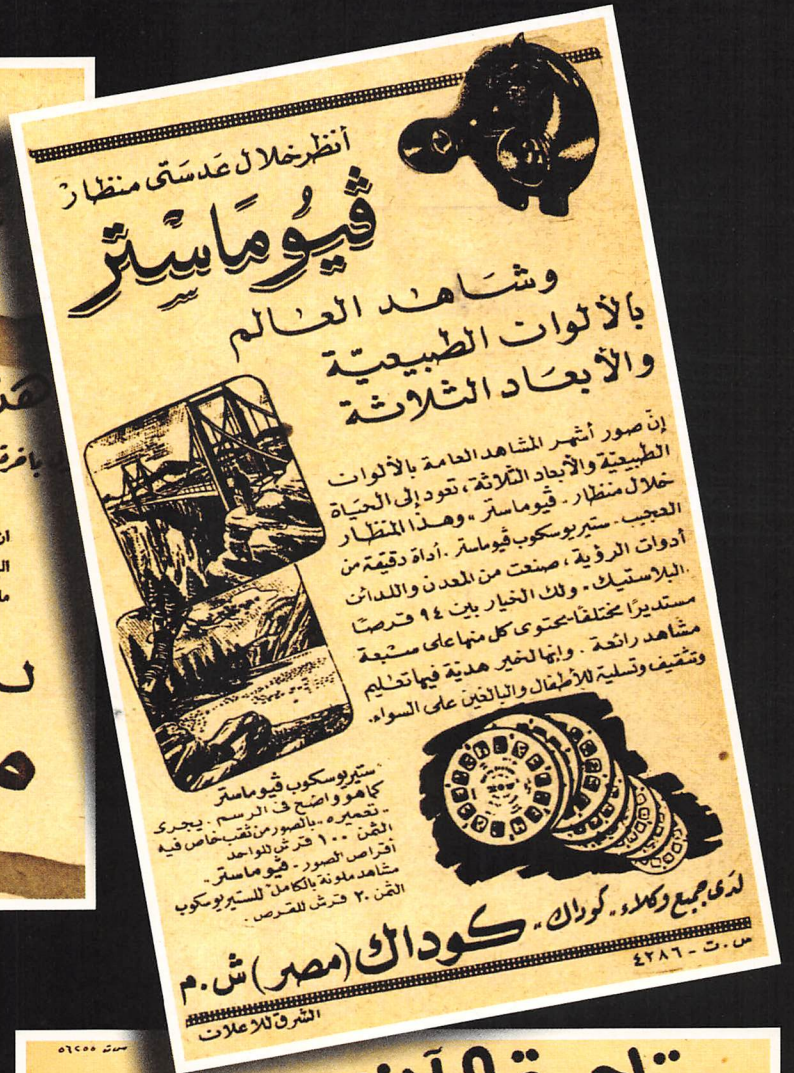 أنظر خلال عَدسَتى منظار
ڤيُومَاسِتر
وشاهد العالم
بالألوان الطبيعيّة
والأبعاد الثلاثة
إنّ صور أشهر المشاهد العامة بالألوان
الطبيعيّة والأبعاد الثلاثة، تعود إلى الحيَاة
خلال منظار - ڤيوماستر - وهذا المنظار
العجيب - ستيريوسكوب ڤيوماستر - أداة دقيقة من
أدوات الرؤية، صنعت من المعدن واللدائن
"البلاستيك" ولك الخيار بين ٩٤ قرصًا
مستديرًا مختلفًا يحتوى كل منها على سبعة
مشاهد رائعة. وإنها لخير هدية فيها تعليم
وتثقيف وتسلية للأطفال والبالغين على السواء.
ستيريوسكوب ڤيوماستر
كما هو واضح فى الرسم. يجرى
"تعميره" بالصور من ثقب خاص فيه
الثمن ١٠٠ قرش للواحد
أقراص الصور - ڤيوماستر -
مشاهد ملونة بالكامل للستيريوسكوب
الثمن ٢٠ قرش للقرص.
لدى جميع وكلاء "كوداك"
كوداك (مصر) ش.م
س.ت - ٤٢٨٦
الشرق للاعلانات
هذ
س.ت ٥٦٢٥٥